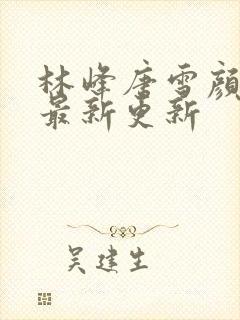 林峰唐雪顏
最新更新
吴建生